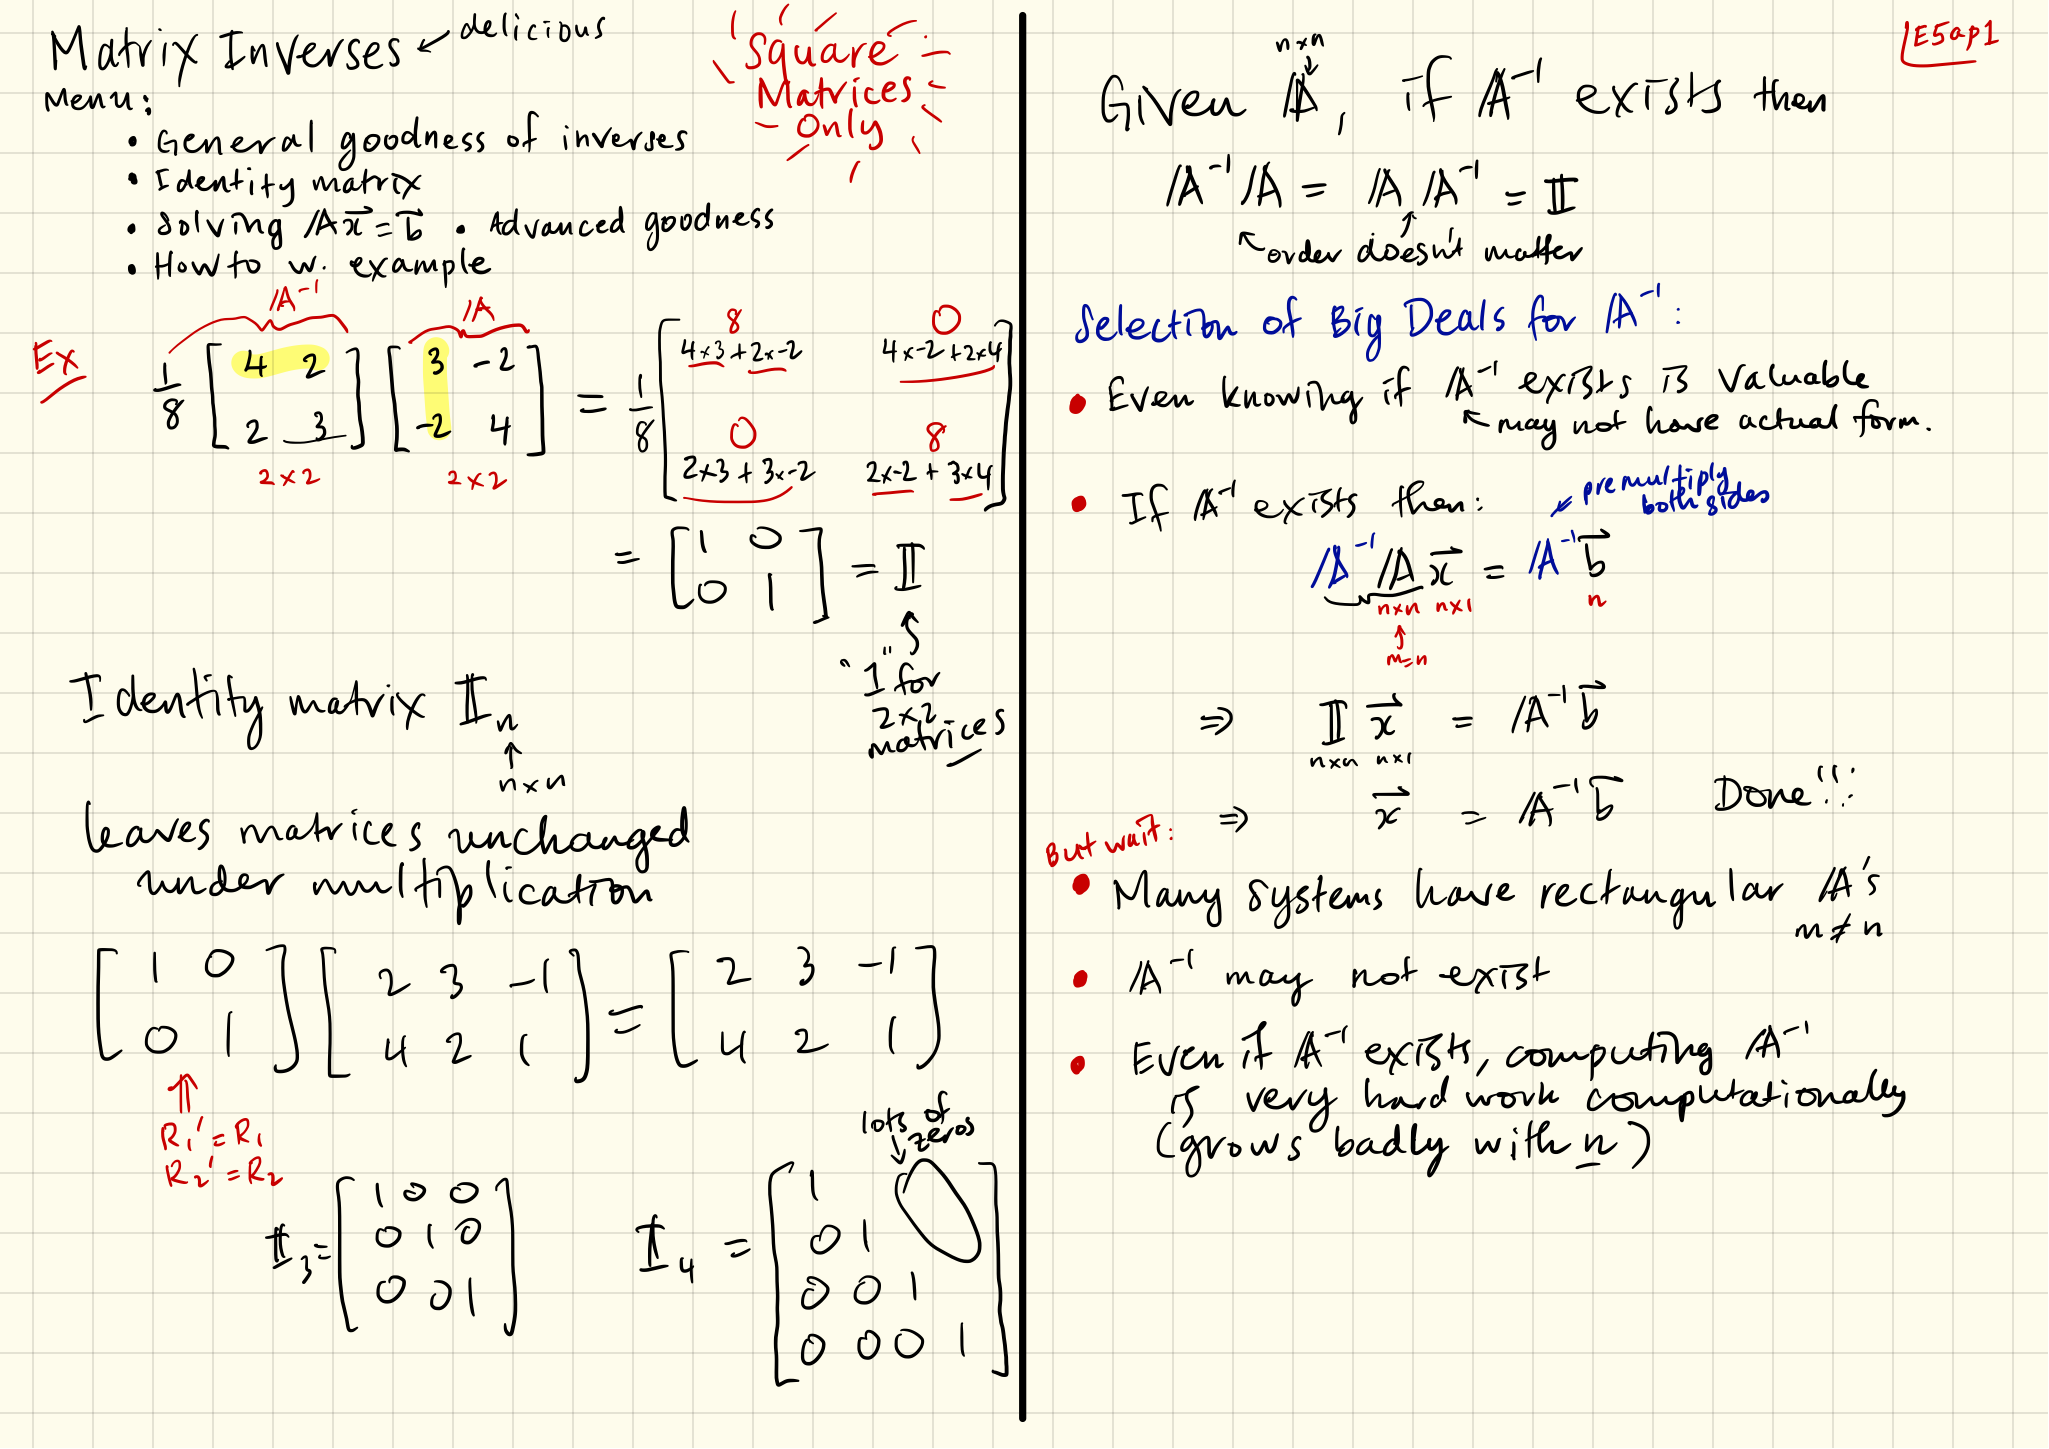 Matrix Inverses ← delicious
Menu:
• General goodness of inverses
• Identity matrix
• Solving 𝔸x⃗ = b⃗ • Advanced goodness
• How to w. example
Square
Matrices
Only
Ex
𝔸⁻¹ 𝔸
1/8 [4 2; 2 3] [3 -2; -2 4] = 1/8 [4x3+2x-2 4x-2+2x4; 2x3+3x-2 2x-2+3x4]
8 0
0 8
2x2 2x2
= [1 0; 0 1] = 𝕀
"1" for
2x2
matrices
Identity matrix 𝕀n
↑
nxn
leaves matrices unchanged
under multiplication
[1 0; 0 1] [2 3 -1; 4 2 1] = [2 3 -1; 4 2 1]
⇑
R₁' = R₁
R₂' = R₂
𝕀₃ = [1 0 0; 0 1 0; 0 0 1]
lots of
zeros
𝕀₄ = [1; 0 1; 0 0 1; 0 0 0 1]
E5ap1
nxn
Given 𝔸, if 𝔸⁻¹ exists then
𝔸⁻¹𝔸 = 𝔸𝔸⁻¹ = 𝕀
order doesn't matter
Selection of Big Deals for 𝔸⁻¹:
• Even knowing if 𝔸⁻¹ exists is valuable
may not have actual form.
• If 𝔸⁻¹ exists then:
premultiply
both sides
𝔸⁻¹𝔸x⃗ = 𝔸⁻¹b⃗
nxn nx1 n
↑
m=n
⇒ 𝕀x⃗ = 𝔸⁻¹b⃗
nxn nx1
⇒ x⃗ = 𝔸⁻¹b⃗ Done!!!
But wait:
• Many systems have rectangular 𝔸's
m ≠ n
• 𝔸⁻¹ may not exist
• Even if 𝔸⁻¹ exists, computing 𝔸⁻¹
is very hard work computationally
(grows badly with n)